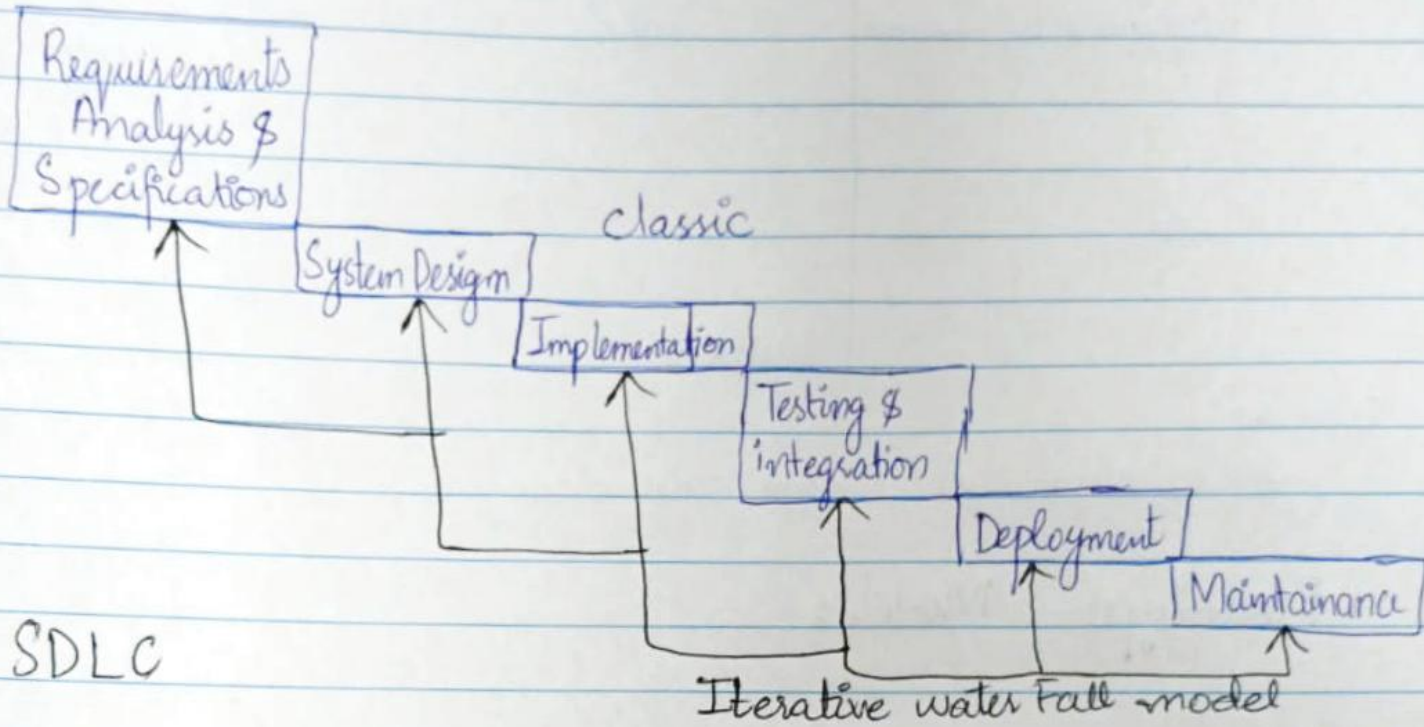 Requirements
Analysis &
Specifications
classic
System Design
Implementation
Testing &
integration
Deployment
Maintainance
SDLC
Iterative water Fall model